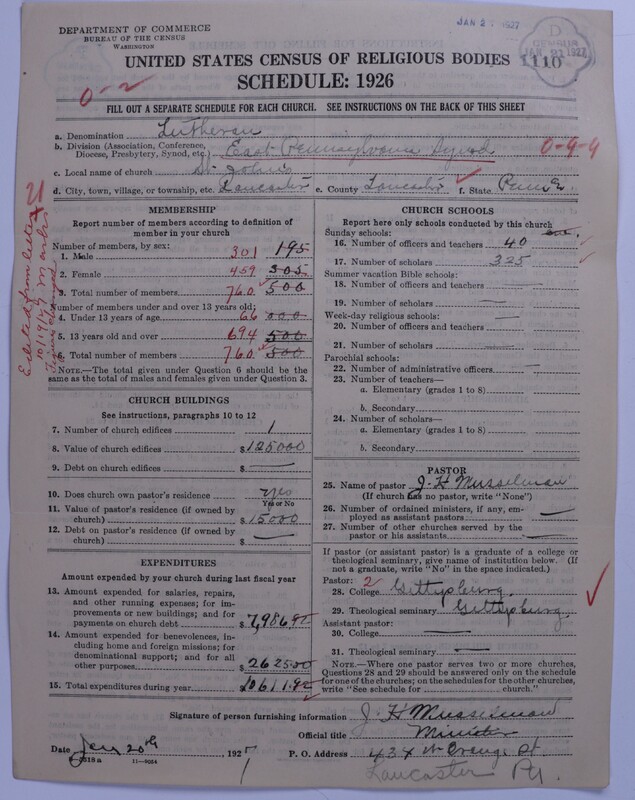 DEPARTMENT OF COMMERCE
BUREAU OF THE CENSUS
WASHINGTON
JAN 2 1927
D
CENSUS
JAN 21 1927
1110
UNITED STATES CENSUS OF RELIGIOUS BODIES
SCHEDULE: 1926
0-2
FILL OUT A SEPARATE SCHEDULE FOR EACH CHURCH. SEE INSTRUCTIONS ON THE BACK OF THIS SHEET
a. Denomination Lutheran
b. Division (Association, Conference, Diocese, Presbytery, Synod, etc.) East Pennsylvania Synod 0-9-9
c. Local name of church St John's
d. City, town, village, or township, etc. Lancaster e. County Lancaster f. State Penna
MEMBERSHIP
Report number of members according to definition of member in your church
Number of members, by sex:
1. Male 301 195
2. Female 459 305
3. Total number of members 760 500
Number of members under and over 13 years old:
4. Under 13 years of age 66 000
5. 13 years old and over 694 500
6. Total number of members 760 500
NOTE.—The total given under Question 6 should be the same as the total of males and females given under Question 3.
Edited from letter
10/19/27
CHURCH BUILDINGS
See instructions, paragraphs 10 to 12
7. Number of church edifices 1
8. Value of church edifices $125000
9. Debt on church edifices $ —
10. Does church own pastor's residence yes
Yes or No
11. Value of pastor's residence (if owned by church) $15000
12. Debt on pastor's residence (if owned by church) $ —
EXPENDITURES
Amount expended by your church during last fiscal year
13. Amount expended for salaries, repairs, and other running expenses; for improvements or new buildings; and for payments on church debt $7,986.92
14. Amount expended for benevolences, including home and foreign missions; for denominational support; and for all other purposes $2625.00
15. Total expenditures during year 10611.92
CHURCH SCHOOLS
Report here only schools conducted by this church
Sunday schools:
16. Number of officers and teachers 40
17. Number of scholars 325
Summer vacation Bible schools:
18. Number of officers and teachers —
19. Number of scholars —
Week-day religious schools:
20. Number of officers and teachers —
21. Number of scholars —
Parochial schools:
22. Number of administrative officers —
23. Number of teachers—
a. Elementary (grades 1 to 8) —
b. Secondary
24. Number of scholars—
a. Elementary (grades 1 to 8) —
b. Secondary
PASTOR
25. Name of pastor J. H Musselman
(If church has no pastor, write "None")
26. Number of ordained ministers, if any, employed as assistant pastors —
27. Number of other churches served by the pastor or his assistants —
If pastor (or assistant pastor) is a graduate of a college or theological seminary, give name of institution below. (If not a graduate, write "No" in the space indicated.)
Pastor: 2
28. College Gettysburg
29. Theological seminary Gettysburg
Assistant pastor:
30. College —
31. Theological seminary —
NOTE.—Where one pastor serves two or more churches, Questions 28 and 29 should be answered only on the schedule for one of the churches; on the schedules for the other churches, write "See schedule for church."
Signature of person furnishing information J H Musselman
Official title Minister
Date Jan 20th 1927
P. O. Address 434 N Orange St
8-2318a 11-9084
Lancaster Pa.